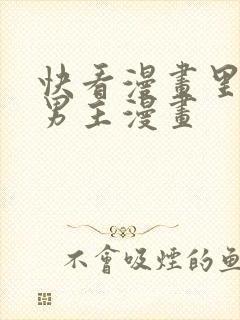 快看漫畫里
男主漫畫
不會吸煙的魚